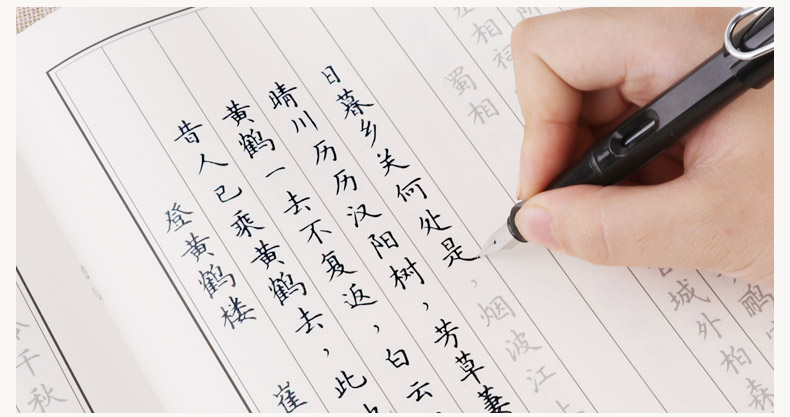 千秋
登黄鹤楼 崔
昔人已乘黄鹤去，此
黄鹤一去不复返，白云
晴川历历汉阳树，芳草萋
日暮乡关何处是，烟波江
蜀相
相祠
城外柏森
鹂